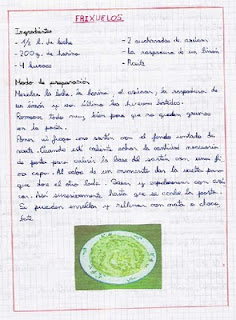 FRIXUELOS
Ingredientes
- 1/2 l. de leche
- 200 g. de harina
- 4 huevos
- 2 cucharadas de azúcar
- La raspadura de un limón
- Aceite
Modo de preparación
Mezclas la leche, la harina, el azúcar, la raspadura de
un limón y por último los huevos batidos.
Remover todo muy bien para que no queden grumos
en la pasta.
Poner al fuego una sartén con el fondo untado de
aceite. Cuando esté caliente echar la cantidad necesaria
de pasta para cubrir la base del sartén con una fi
na capa. Al cabo de un momento dar la vuelta para
que dore el otro lado. Sacar y espolvorear con azú
car. Así sucesivamente hasta que se acabe la pasta.
Se pueden enrollar y rellenar con nata o choco
late.